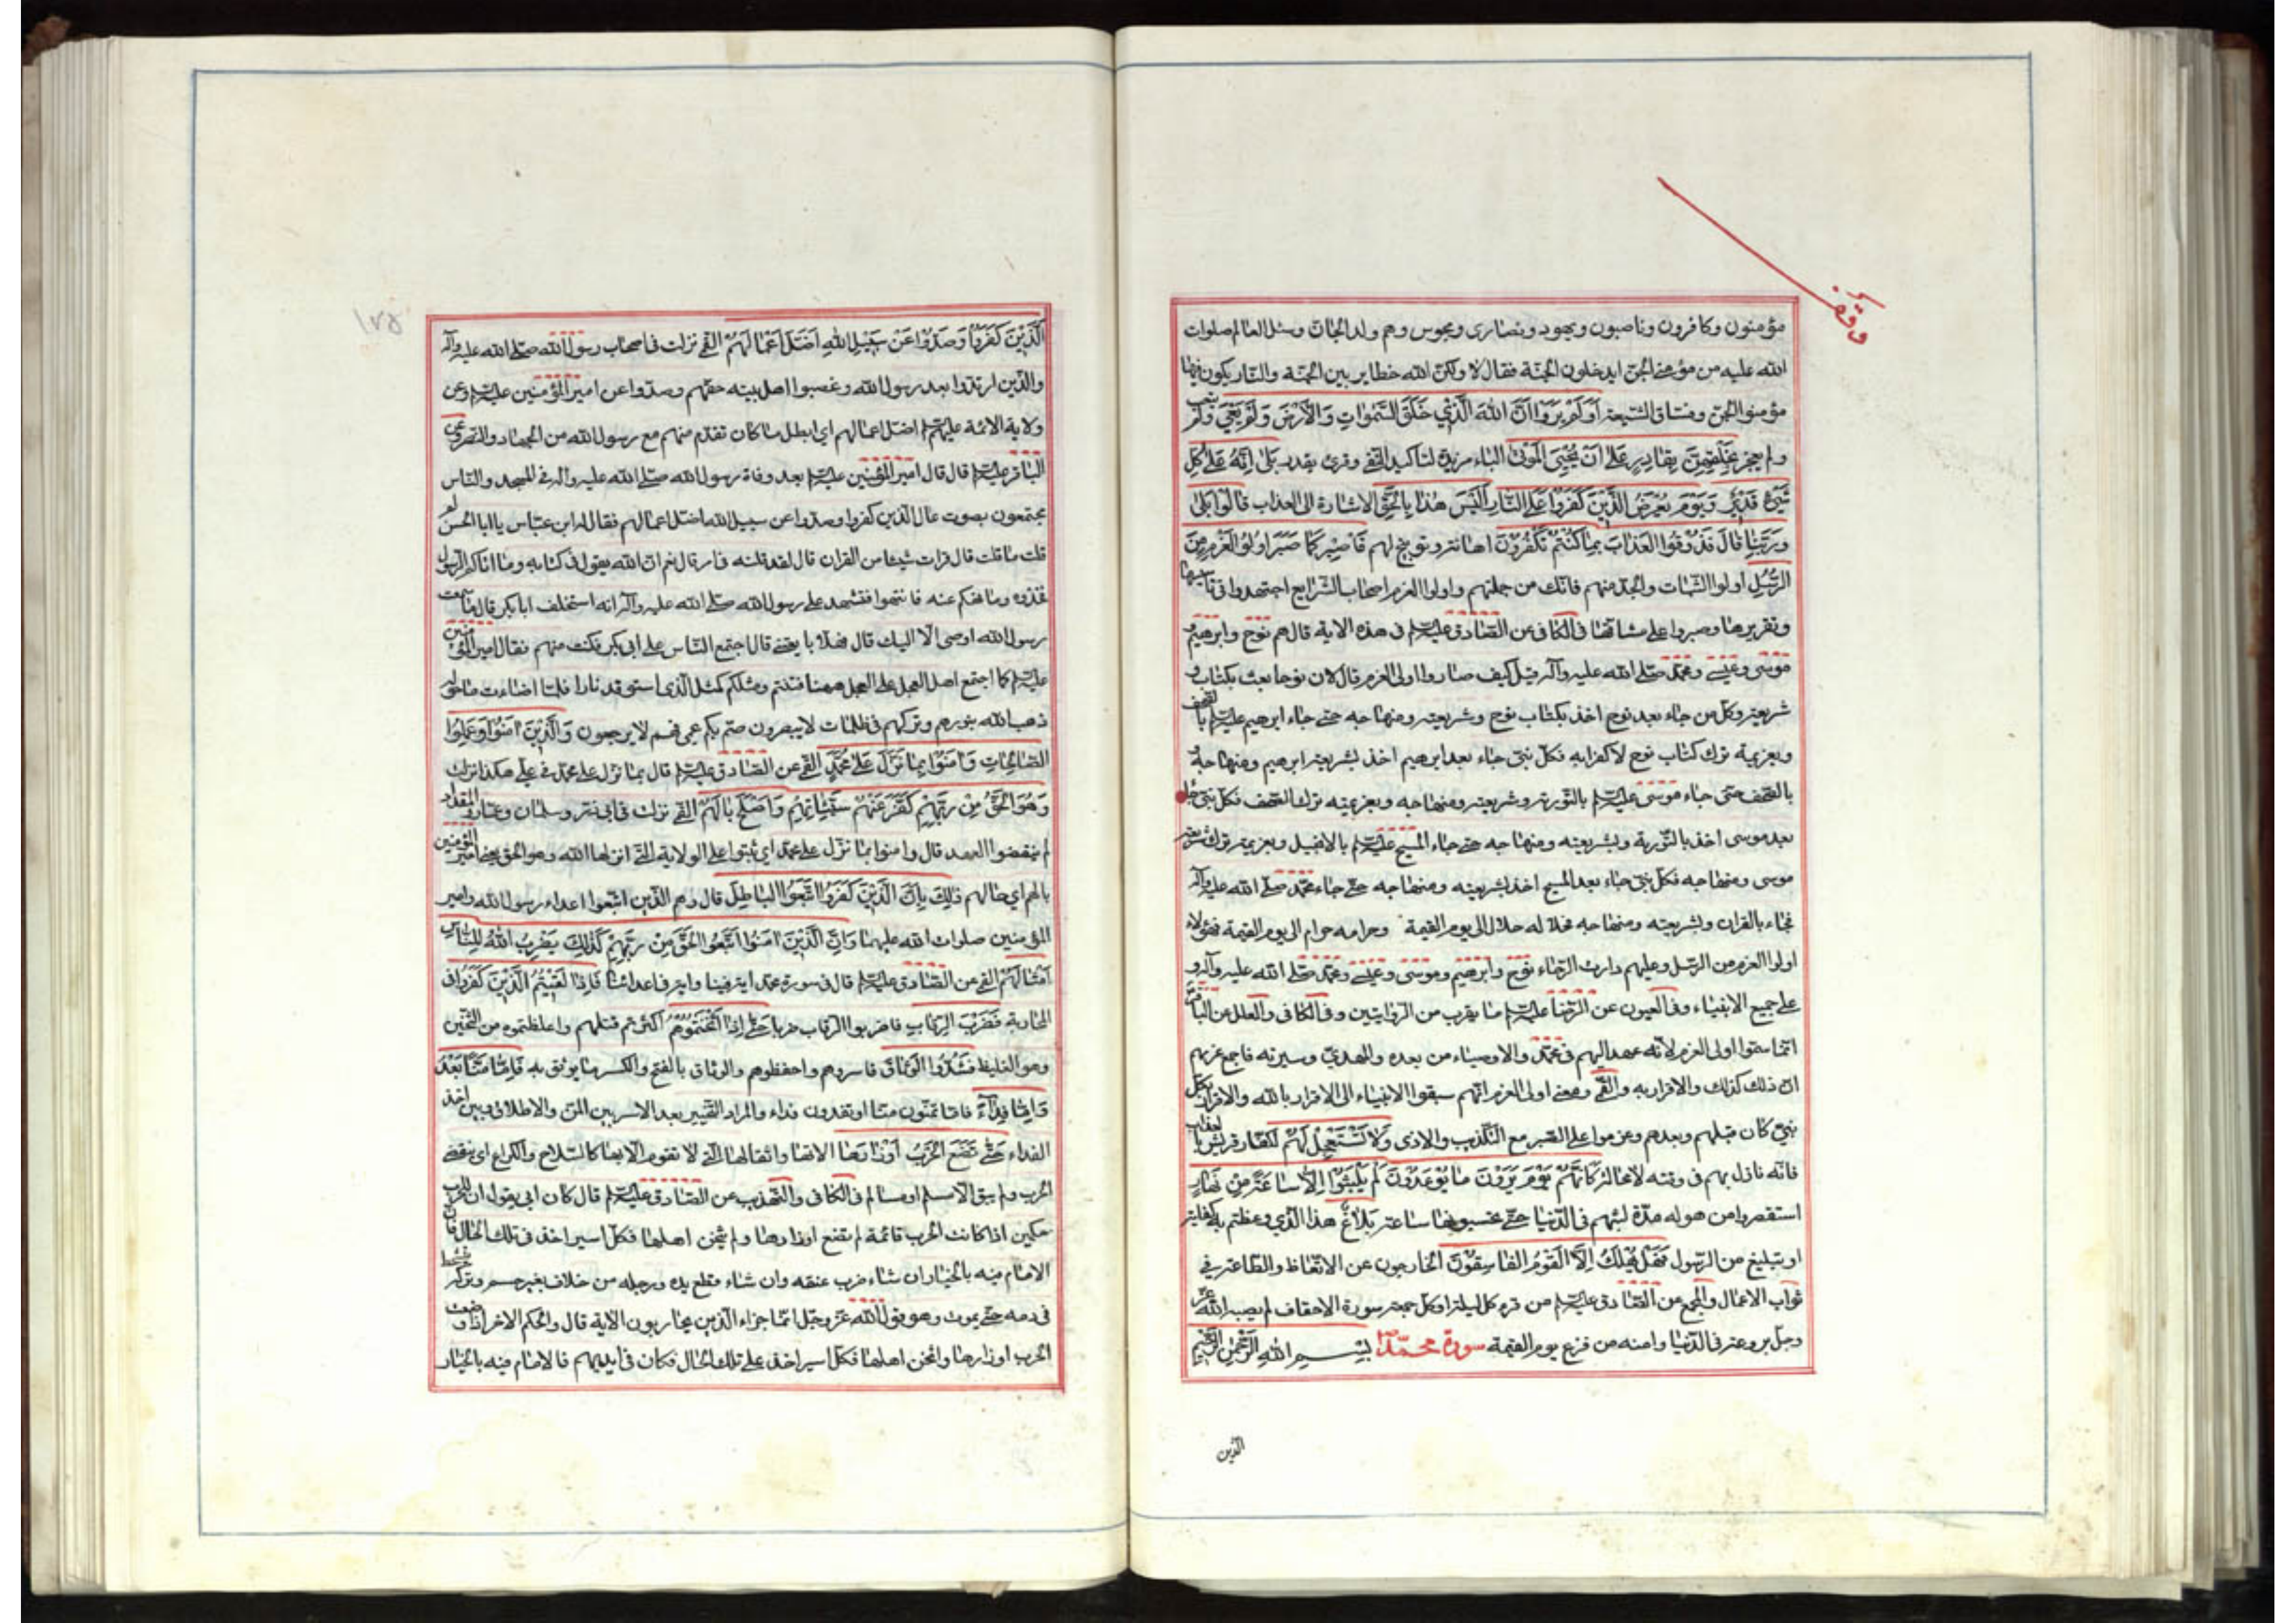 وقف
مؤمنون وكافرون وناصبون ويهود ونصارى ومجوس وهم ولد الجانّ وسئل العالم صلوات
الله عليه من مؤمنى الجنّ ايدخلون الجنّة فقال لا ولكنّ الله حظاير بين الجنّة والنّار يكون فيها
مؤمنوا الجنّ وفسّاق الشيعة اَوَلَمْ يَرَوْا اَنَّ اللهَ الَّذِي خَلَقَ السَّمٰوَاتِ وَالْاَرْضَ وَلَمْ يَعْيَ ولم يتعب
ولم يعجز بِخَلْقِهِنَّ بِقَادِرٍ عَلٰى اَنْ يُحْيِيَ الْمَوْتٰى الباء مزيدة لتاكيد النّفى وقرئ يقدر بَلٰى اِنَّهُ عَلٰى كُلِّ
شَيْءٍ قَدِيْرٌ وَيَوْمَ يُعْرَضُ الَّذِيْنَ كَفَرُوْا عَلَى النَّارِ اَلَيْسَ هٰذَا بِالْحَقِّ الاشارة الى العذاب قَالُوْا بَلٰى
وَرَبِّنَا قَالَ فَذُوْقُوا الْعَذَابَ بِمَا كُنْتُمْ تَكْفُرُوْنَ اهانة وتوبيخ لهم فَاصْبِرْ كَمَا صَبَرَ اُولُوا الْعَزْمِ مِنَ
الرُّسُلِ اولوا الثّبات والجدّ منهم فانّك من جملتهم واولوا العزم اصحاب الشّرايع اجتهدوا فى تاسيسها
وتقريرها وصبروا على مشاقّها فى الكافى عن الصّادق عليه السّلم فى هذه الاية قال هم نوح وابرهيم و
موسى وعيسى ومحمّد صلّى الله عليه وآله قيل كيف صاروا اولى العزم قال لان نوحا بعث بكتاب و
شريعة وكلّ من جاء بعد نوح اخذ بكتاب نوح وشريعته ومنهاجه حتّى جاء ابرهيم عليه السّلم بالصّحف
وبعزيمة ترك كتاب نوح لا كفرا به فكلّ نبىّ جاء بعد ابرهيم اخذ بشريعة ابرهيم ومنهاجه و
بالصّحف حتى جاء موسى عليه السّلم بالتّورية وشريعته ومنهاجه وبعزيمة ترك الصّحف فكلّ نبىّ جاء
بعد موسى اخذ بالتّورية وبشريعته ومنهاجه حتّى جاء المسيح عليه السّلم بالانجيل وبعزيمة ترك شريعة
موسى ومنهاجه فكلّ نبىّ جاء بعد المسيح اخذ بشريعته ومنهاجه حتّى جاء محمّد صلّى الله عليه وآله
فجاء بالقران وبشريعته ومنهاجه فحلاله حلال الى يوم القيمة وحرامه حرام الى يوم القيمة فهؤلاء
اولوا العزم من الرّسل وعليهم دارت الرّحاء نوح وابرهيم وموسى وعيسى ومحمّد صلّى الله عليه وآله و
على جميع الانبياء وفى العيون عن الرّضا عليه السّلم ما يقرب من الرّوايتين وفى الكافى والعلل عن الباقر
انّما سمّوا اولى العزم لانّه عهد اليهم فى محمّد والاوصياء من بعده والمهدىّ وسيرته فاجمع عزمهم
انّ ذلك كذلك والاقرار به والقمّى ومعنى اولى العزم انّهم سبقوا الانبياء الى الاقرار بالله والاقرار بكلّ
نبىّ كان قبلهم وبعدهم وعزموا على الصّبر مع التّكذيب والاذى وَلَا تَسْتَعْجِلْ لَهُمْ لكفّار قريش بالعذاب
فانّه نازل بهم فى وقته لا محالة كَاَنَّهُمْ يَوْمَ يَرَوْنَ مَا يُوْعَدُوْنَ لَمْ يَلْبَثُوْا اِلَّا سَاعَةً مِنْ نَهَارٍ
استقصروا من هوله مدّة لبثهم فى الدّنيا حتّى يحسبونها ساعة بَلَاغٌ هذا الّذى وعظتم به كفاية
او تبليغ من الرّسول فَهَلْ يُهْلَكُ اِلَّا الْقَوْمُ الْفَاسِقُوْنَ الخارجون عن الاتّعاظ والطّاعة فى
ثواب الاعمال والمجمع عن الصّادق عليه السّلم من قرء كلّ ليلة او كلّ جمعة سورة الاحقاف لم يصبه الله عزّ
وجلّ بروعة فى الدّنيا وامنه من فزع يوم القيمة سورة محمّد بِسْمِ اللهِ الرَّحْمٰنِ الرَّحِيْمِ
الّذين
١٢٥
اَلَّذِيْنَ كَفَرُوْا وَصَدُّوْا عَنْ سَبِيْلِ اللهِ اَضَلَّ اَعْمَالَهُمْ القمّى نزلت فى اصحاب رسول الله صلّى الله عليه وآله
والّذين ارتدّوا بعد رسول الله وغصبوا اهل بيته حقّهم وصدّوا عن امير المؤمنين عليه السّلم وعن
ولاية الائمة عليهم السّلم اضلّ اعمالهم اى ابطل ما كان تقدّم منهم مع رسول الله من الجهاد والنّصرة وعن
الباقر عليه السّلم قال قال امير المؤمنين عليه السّلم بعد وفاة رسول الله صلّى الله عليه وآله فى المسجد والنّاس
مجتمعون بصوت عال الّذين كفروا وصدّوا عن سبيل الله اضلّ اعمالهم فقال له ابن عبّاس يا ابا الحسن لم
قلت ما قلت قال قرات شيئا من القران قال لقد قلته لامر قال نعم انّ الله يقول فى كتابه وما اتاكم الرّسول
فخذوه وما نهيكم عنه فانتهوا فتشهد على رسول الله صلّى الله عليه وآله انه استخلف ابا بكر قال ما سمعت
رسول الله اوصى الّا اليك قال فهلّا بايعتنى قال اجتمع النّاس على ابى بكر فكنت منهم فقال امير المؤمنين
عليه السّلم كما اجتمع اهل العجل على العجل ههنا فتنتم ومثلكم كمثل الّذى استوقد نارا فلمّا اضاءت ما حوله
ذهب الله بنورهم وتركهم فى ظلمات لا يبصرون صمّ بكم عمى فهم لا يرجعون وَالَّذِيْنَ اٰمَنُوْا وَعَمِلُوا
الصَّالِحَاتِ وَاٰمَنُوْا بِمَا نُزِّلَ عَلٰى مُحَمَّدٍ القمّى عن الصّادق عليه السّلم قال بما نزّل على محمّد فى علىّ هكذا نزلت
وَهُوَ الْحَقُّ مِنْ رَبِّهِمْ كَفَّرَ عَنْهُمْ سَيِّئَاتِهِمْ وَاَصْلَحَ بَالَهُمْ القمّى نزلت فى ابى ذرّ وسلمان وعمّار والمقداد
لم ينقضوا العهد قال وامنوا بما نزّل على محمّد اى ثبتوا على الولاية الّتى انزلها الله وهو الحقّ يعنى امير المؤمنين
بالهم اى حالهم ذٰلِكَ بِاَنَّ الَّذِيْنَ كَفَرُوا اتَّبَعُوا الْبَاطِلَ قال وهم الّذين اتّبعوا اعداء رسول الله وامير
المؤمنين صلوات الله عليهما وَاَنَّ الَّذِيْنَ اٰمَنُوا اتَّبَعُوا الْحَقَّ مِنْ رَبِّهِمْ كَذٰلِكَ يَضْرِبُ اللهُ لِلنَّاسِ
اَمْثَالَهُمْ القمّى عن الصّادق عليه السّلم قال فى سورة محمّد اية فينا واية فى اعدائنا فَاِذَا لَقِيْتُمُ الَّذِيْنَ كَفَرُوْا فى
المحاربة فَضَرْبَ الرِّقَابِ فاضربوا الرّقاب ضربا حَتّٰى اِذَا اَثْخَنْتُمُوْهُمْ اكثرتم قتلهم واغلظتموه من الثّخين
وهو الغليظ فَشُدُّوا الْوَثَاقَ فاسروهم واحفظوهم والوثاق بالفتح والكسر ما يوثق به فَاِمَّا مَنًّا بَعْدُ
وَاِمَّا فِدَآءً فامّا تمنّون منّا او تفدون فداء والمراد التّخيير بعد الاسر بين المنّ والاطلاق وبين اخذ
الفداء حَتّٰى تَضَعَ الْحَرْبُ اَوْزَارَهَا الاتها واثقالها الّتى لا تقوم الّا بها كالسّلاح والكراع اى ينقضى
الحرب ولم يبق الّا مسلم او مسالم فى الكافى والتّهذيب عن الصّادق عليه السّلم قال كان ابى يقول ان للحرب
حكمين اذا كانت الحرب قائمة لم تضع اوزارها ولم يثخن اهلها فكلّ اسير اخذ فى تلك الحال فانّ
الامام فيه بالخيار ان شاء ضرب عنقه وان شاء قطع يده ورجله من خلاف بغير حسم وتركه يتشحّط
فى دمه حتّى يموت وهو قول الله عزّ وجلّ انّما جزاء الّذين يحاربون الآية قال والحكم الاخر اذا وضعت
الحرب اوزارها واثخن اهلها فكلّ اسير اخذ على تلك الحال فكان فى ايديهم فالامام فيه بالخيار